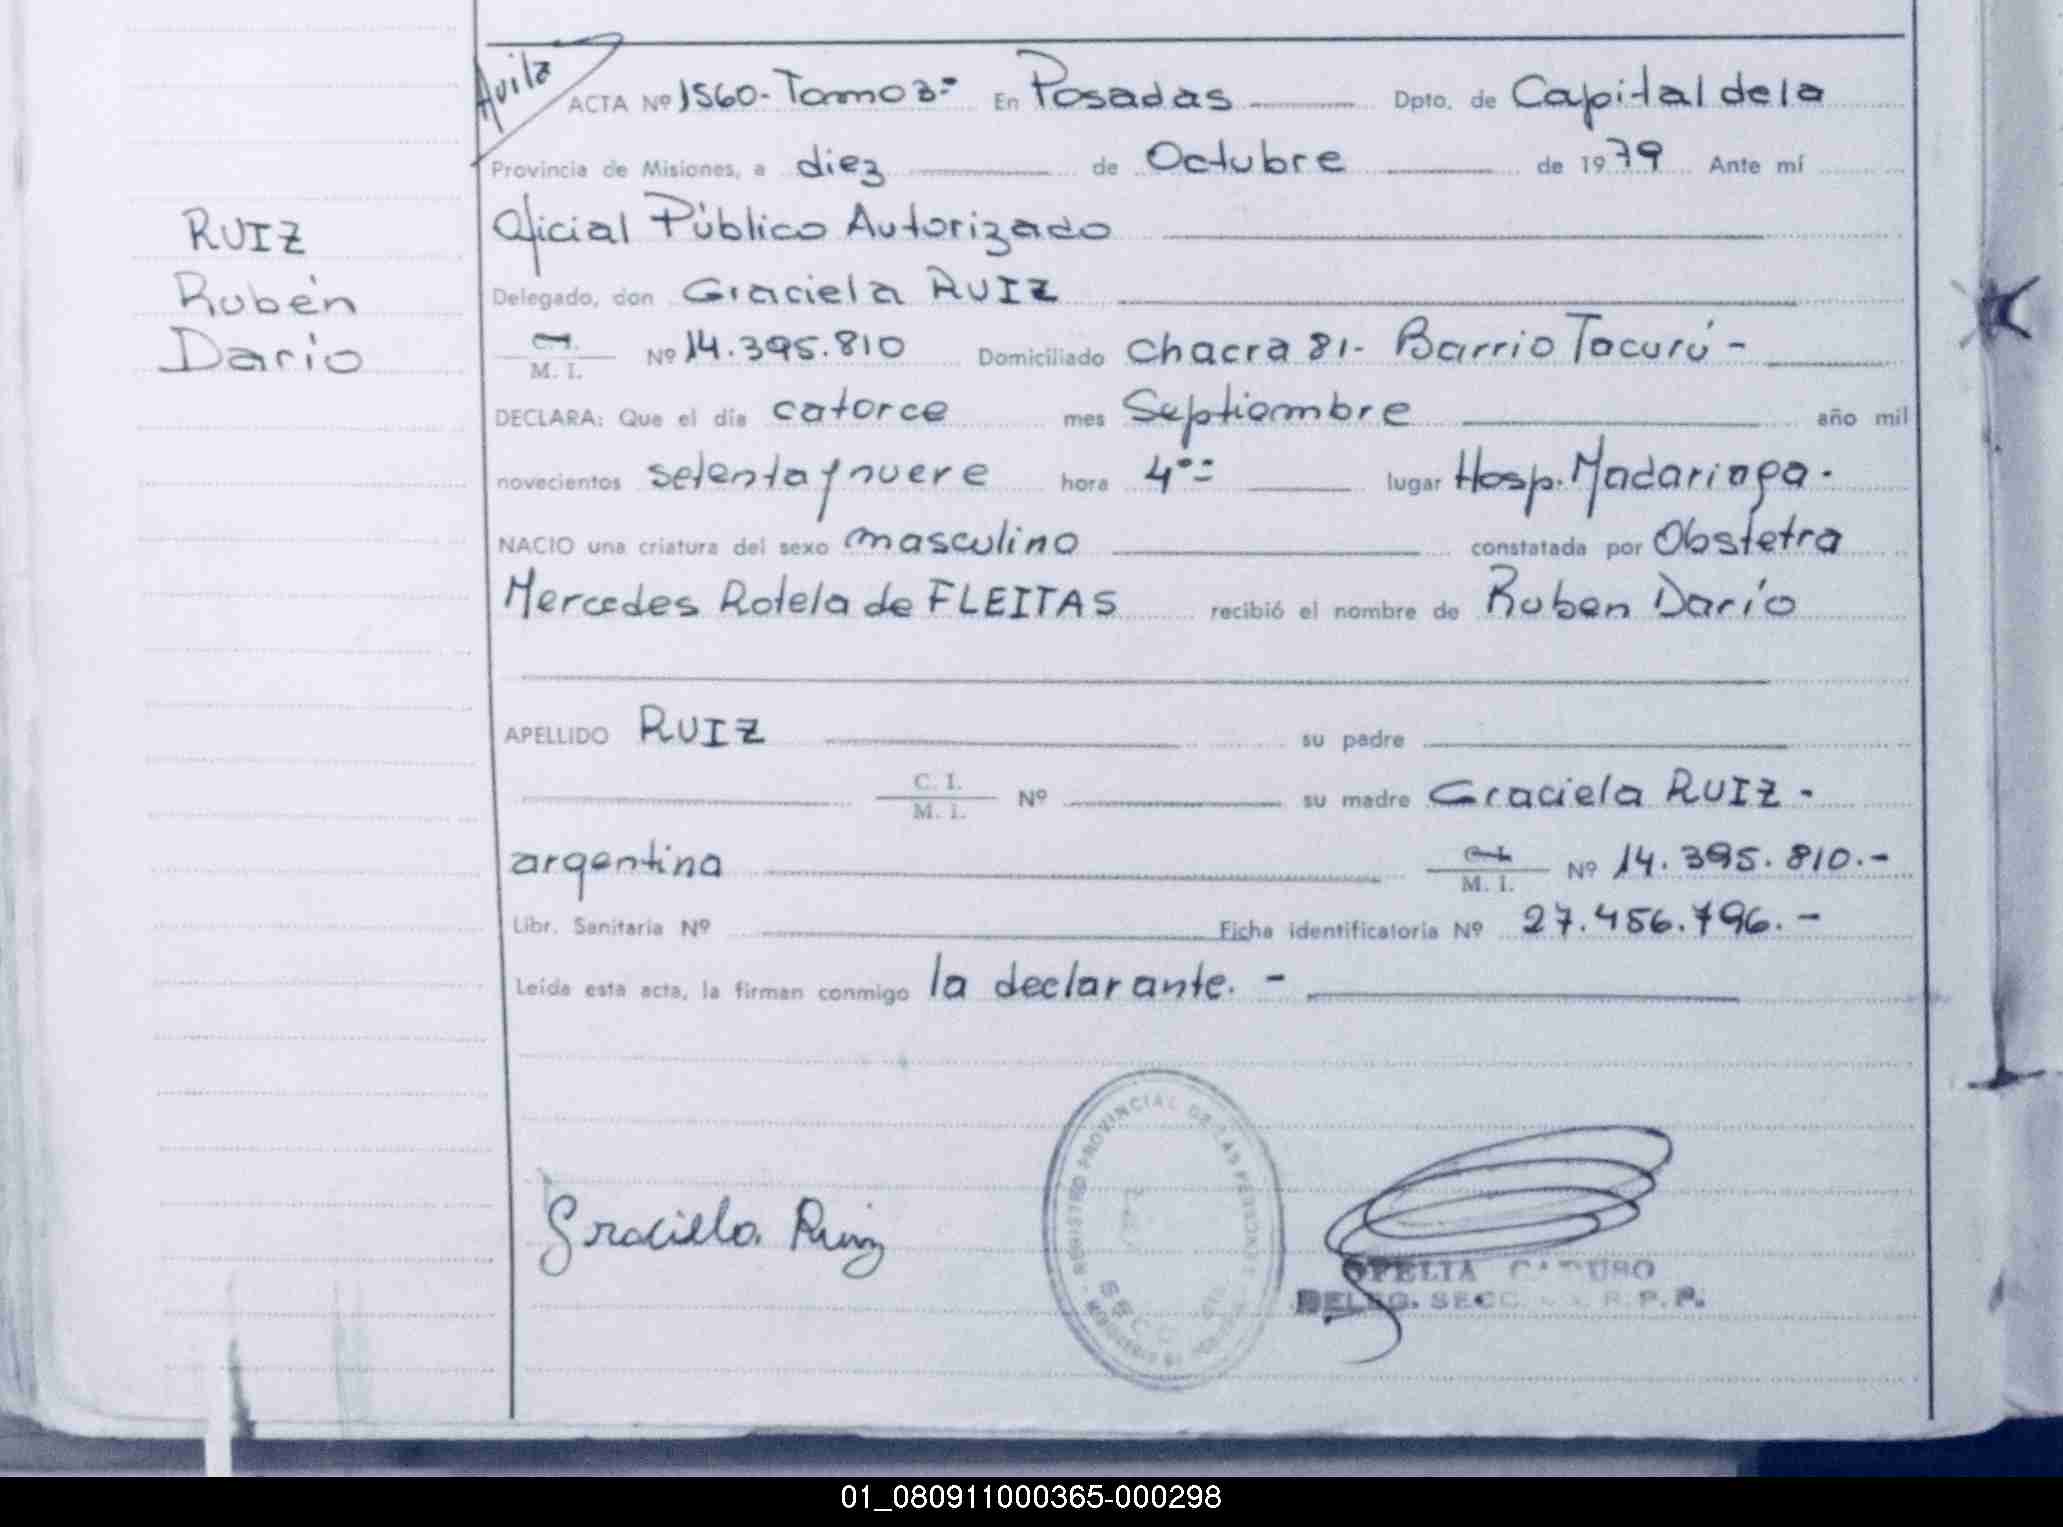 Avila
ACTA Nº 1560- Tomo 3º- En Posadas Dpto. de Capital de la
Provincia de Misiones, a diez de Octubre de 1979 Ante mí
Oficial Público Autorizado
RUIZ
Rubén
Darío
Delegado, don Graciela RUIZ
M. I. Nº 14.395.810 Domiciliado Chacra 81- Barrio Tacurú -
DECLARA: Que el día catorce mes Septiembre año mil
novecientos setenta y nueve hora 4º= lugar Hosp. Madariaga.
NACIO una criatura del sexo masculino constatada por Obstetra
Mercedes Rotela de FLEITAS recibió el nombre de Ruben Darío
APELLIDO RUIZ su padre
C. I.
M. I. Nº su madre Graciela RUIZ -
argentina M. I. Nº 14.395.810.-
Libr. Sanitaria Nº Ficha identificatoria Nº 27.456.796.-
Leída esta acta, la firman conmigo la declarante. -
REGISTRO PROVINCIAL DE LAS PERSONAS
Graciella Ruiz
OFELIA CARUSO
DELEG. SECC. R.P.P.
01_080911000365-000298